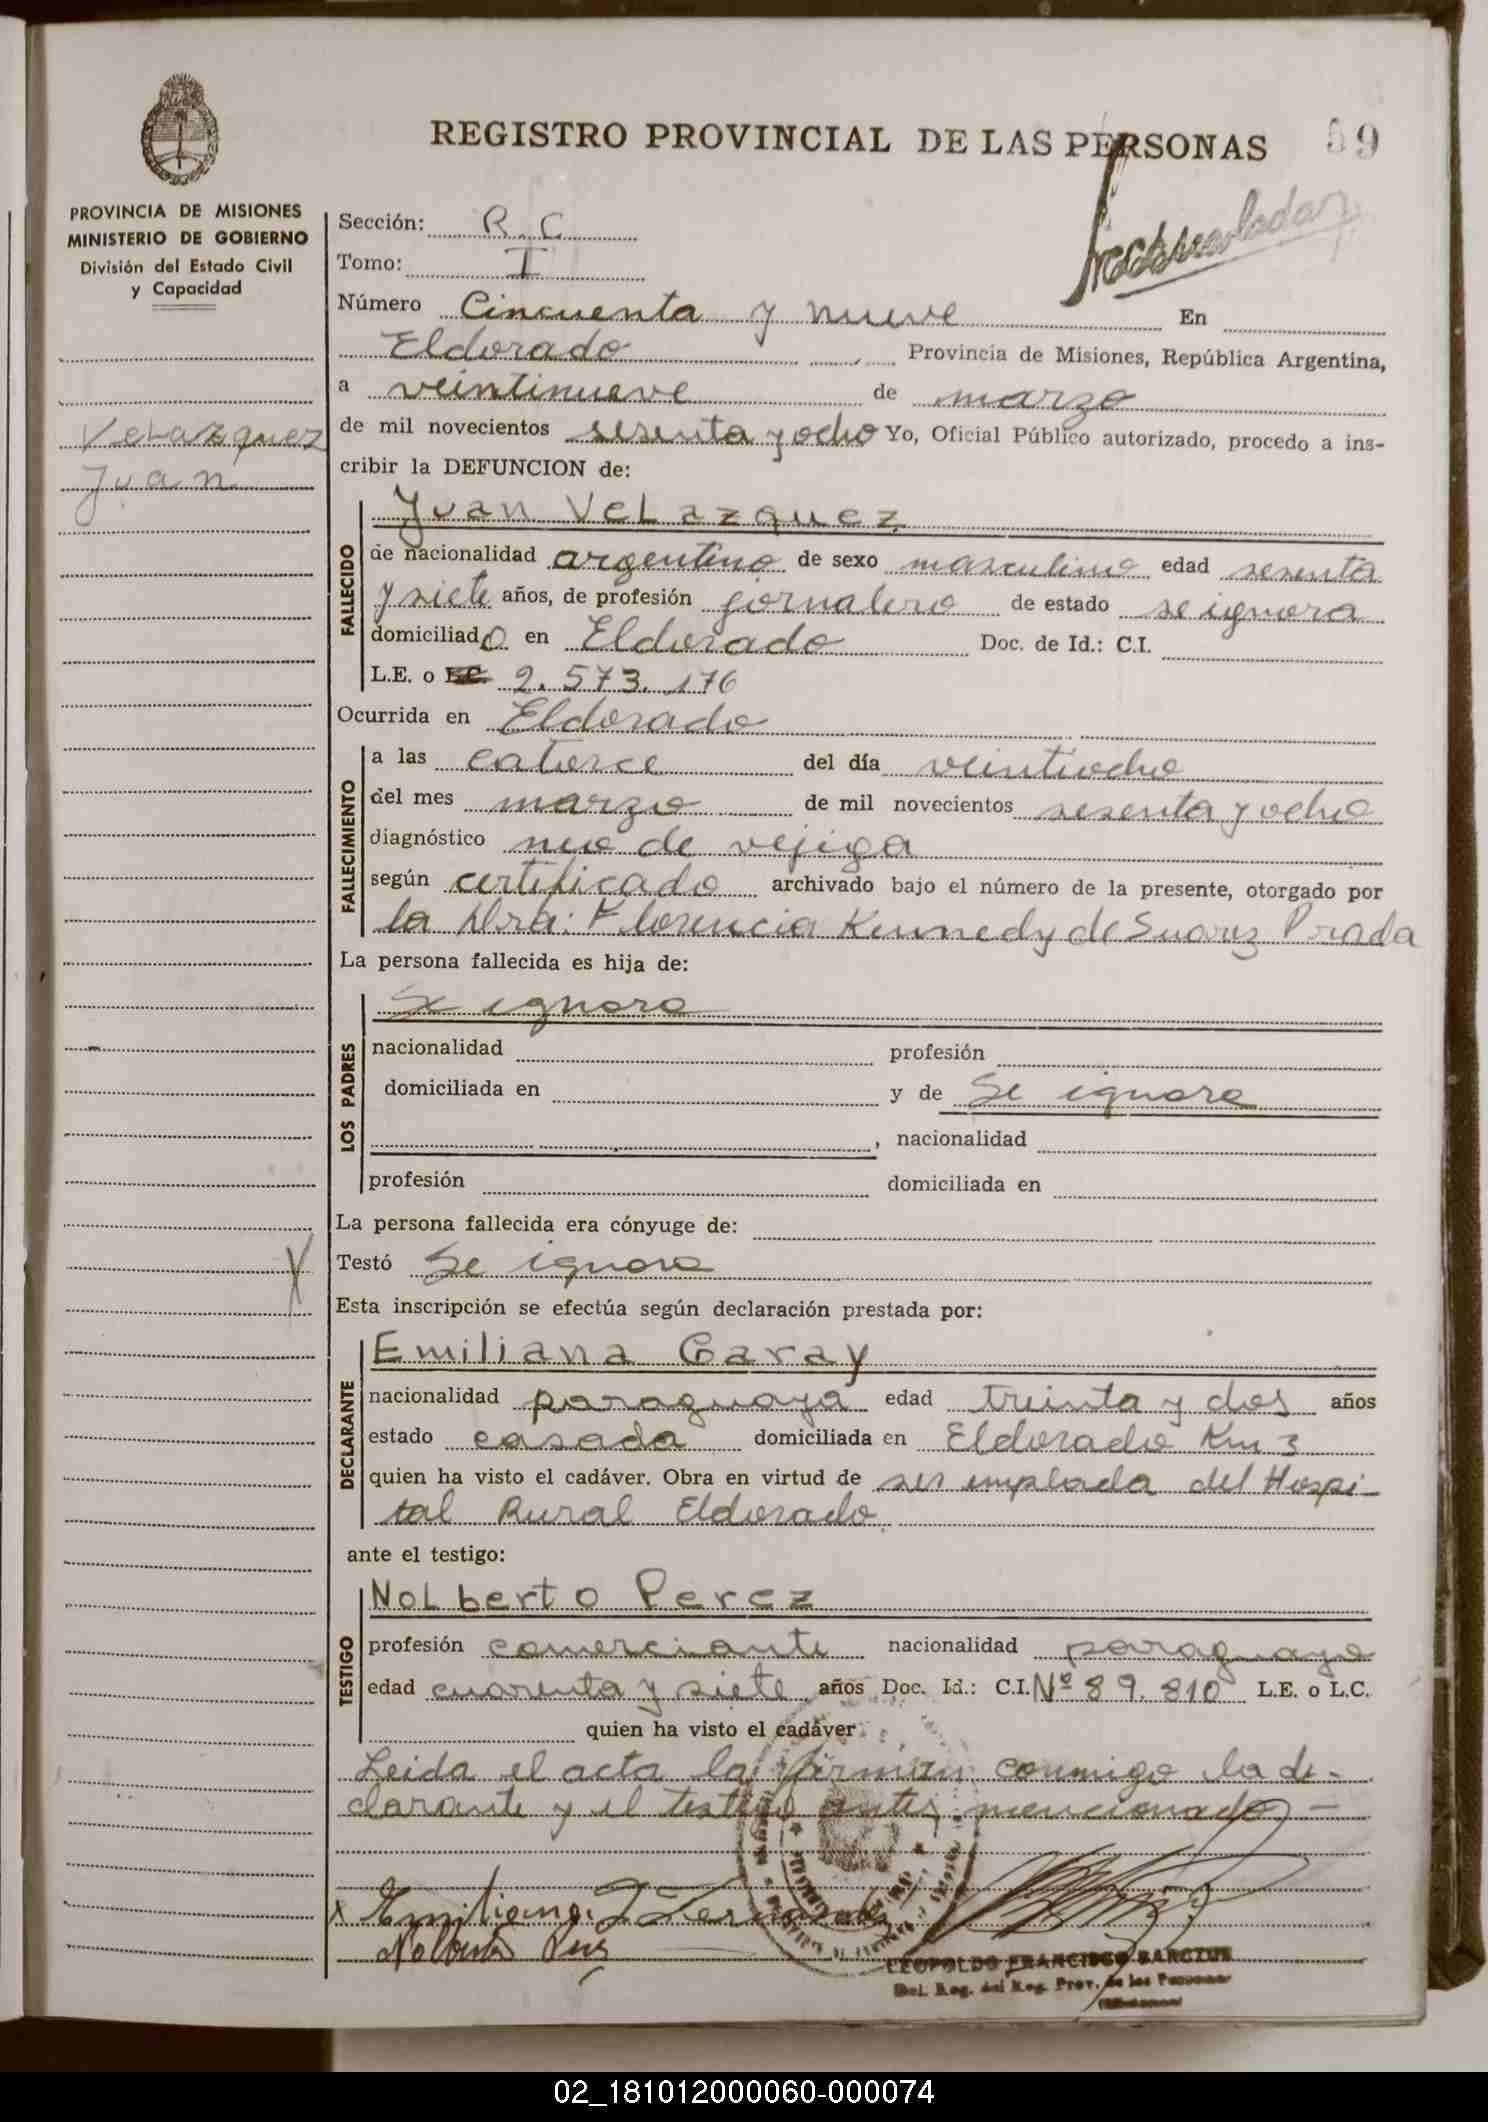 REGISTRO PROVINCIAL DE LAS PERSONAS 59
PROVINCIA DE MISIONES
MINISTERIO DE GOBIERNO
División del Estado Civil
y Capacidad
Velazquez
Juan
Sección: R.C
Tomo: I
Número Cincuenta y nueve En
Eldorado Provincia de Misiones, República Argentina,
a veintinueve de marzo
de mil novecientos sesenta y ocho Yo, Oficial Público autorizado, procedo a ins-
cribir la DEFUNCION de:
FALLECIDO
Juan Velazquez
de nacionalidad argentino de sexo masculino edad sesenta
y siete años, de profesión jornalero de estado se ignora
domiciliado en Eldorado Doc. de Id.: C.I.
L.E. o L.C. 2.573.176
Ocurrida en Eldorado
FALLECIMIENTO
a las catorce del día veintiocho
del mes marzo de mil novecientos sesenta y ocho
diagnóstico neo de vejiga
según certificado archivado bajo el número de la presente, otorgado por
la Dra: Florencia Kennedy de Suarez Prada
La persona fallecida es hija de:
LOS PADRES
Se ignora
nacionalidad profesión
domiciliada en y de Se ignora
, nacionalidad
profesión domiciliada en
La persona fallecida era cónyuge de:
Testó Se ignora
Esta inscripción se efectúa según declaración prestada por:
DECLARANTE
Emiliana Garay
nacionalidad paraguaya edad treinta y dos años
estado casada domiciliada en Eldorado Km 3
quien ha visto el cadáver. Obra en virtud de ser emplada del Hospi-
tal Rural Eldorado
ante el testigo:
TESTIGO
Nolberto Perez
profesión comerciante nacionalidad paraguayo
edad cuarenta y siete años Doc. Id.: C.I. Nº 89.810 L.E. o L.C.
quien ha visto el cadáver
Leida el acta la firman conmigo la de-
clarante y el testigo antes mencionado -
x Emiliana
Nolberto Perez
LEOPOLDO FRANCISCO BARCZUK
Del. Reg. del Reg. Prov. de las Personas
02_181012000060-000074